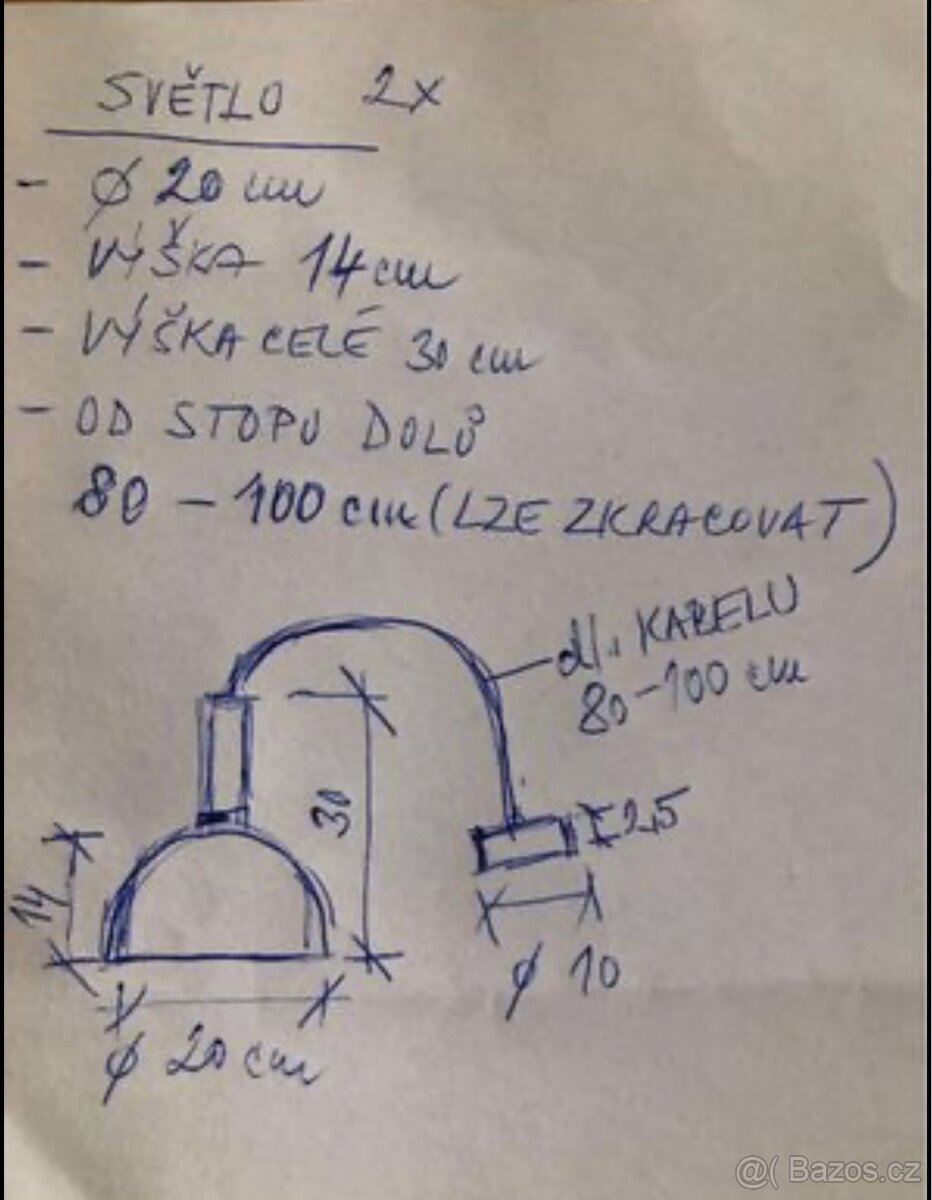 SVĚTLO 2x
- Ø 20 cm
- VÝŠKA 14 cm
- VÝŠKA CELÉ 30 cm
- OD STOPU DOLŮ
80 - 100 cm (LZE ZKRACOVAT)
dl. KABELU
80-100 cm
30
2,5
14
Ø 10
Ø 20 cm
@( Bazos.cz